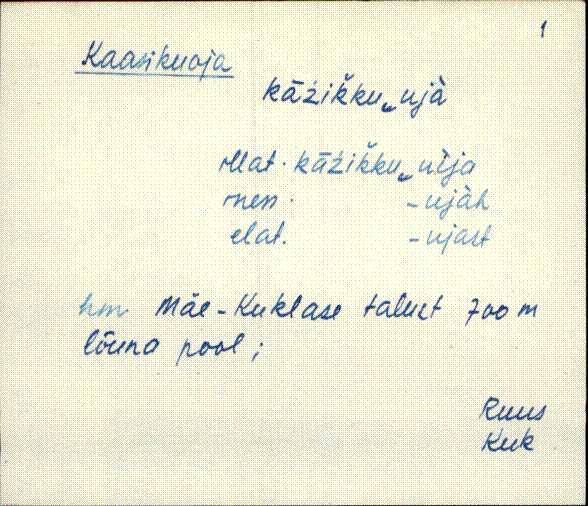 1
Kaasikuoja
kāźikku‿ujà
illat. kāźikku‿uìja
ines. -ujàh
elat. -ujast
hm Mäe-Kuklase talust 700 m
lõuna pool;
Ruus
Kuk